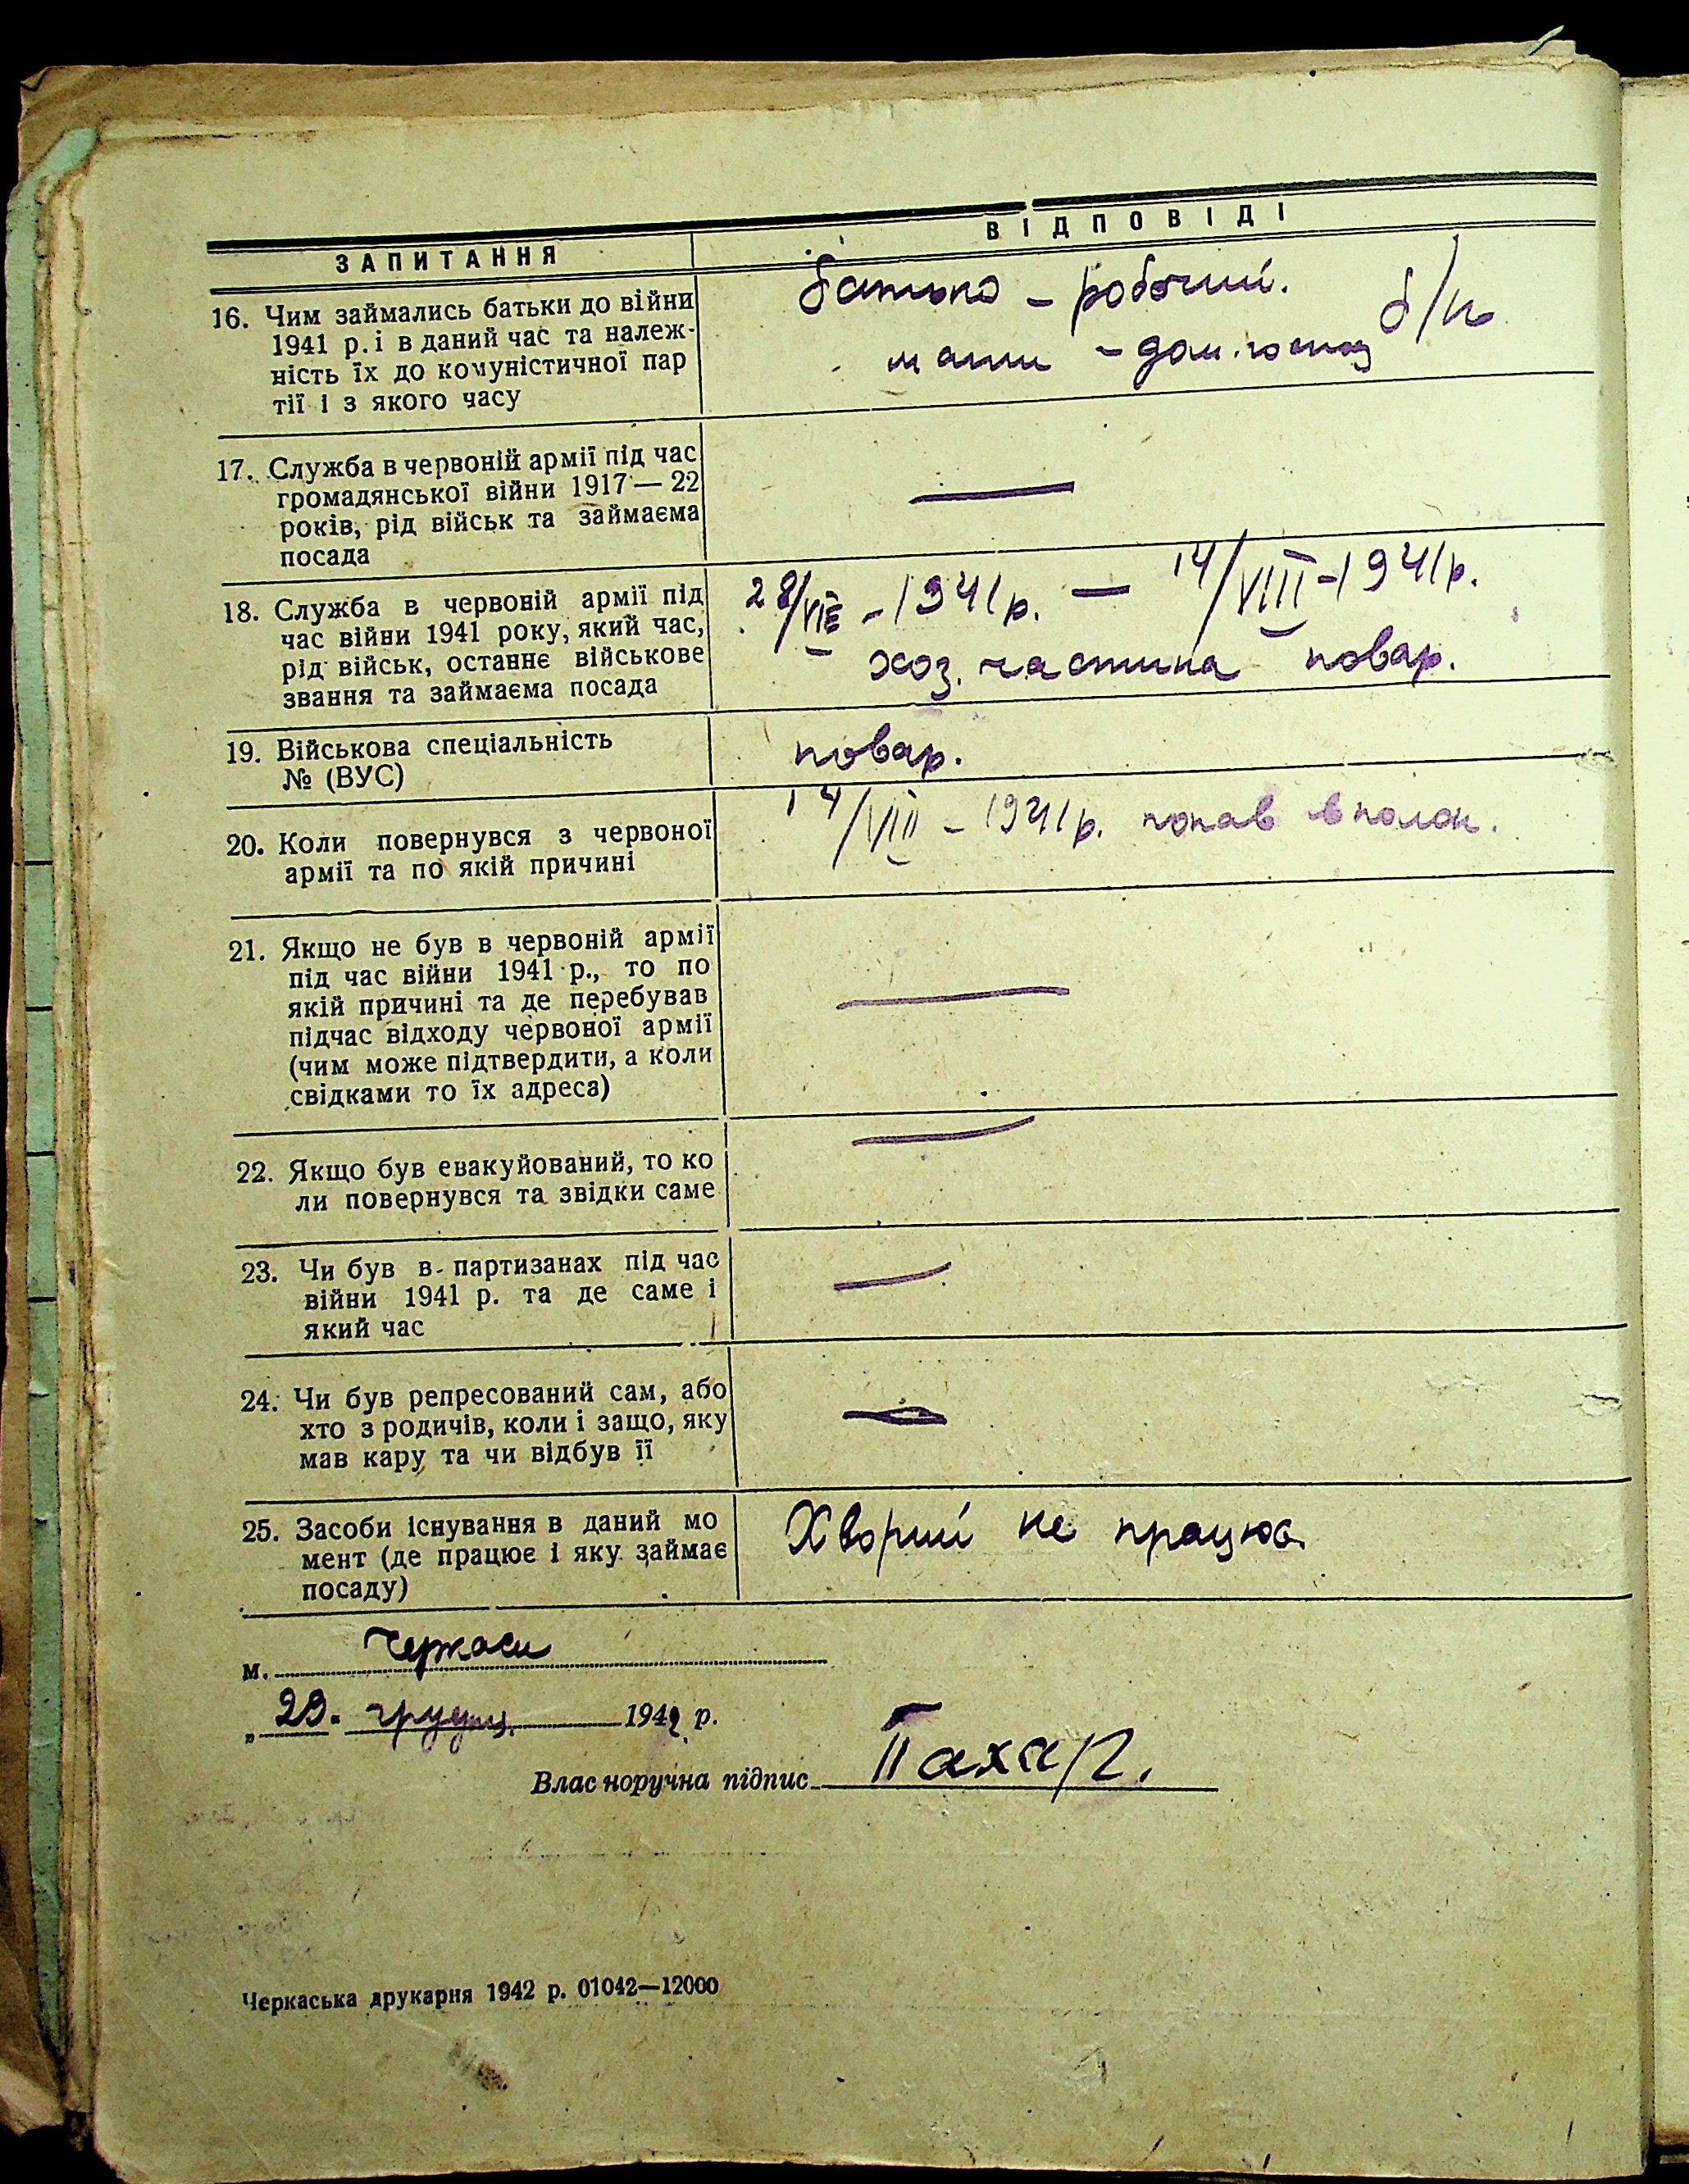 ЗАПИТАННЯ
ВІДПОВІДІ
16. Чим займались батьки до війни
1941 р. і в даний час та належ-
ність їх до комуністичної пар
тії і з якого часу
батько – робочий.
мати – дом. госпо. б/п
17. Служба в червоній армії під час
громадянської війни 1917 — 22
років, рід військ та займаєма
посада
—
18. Служба в червоній армії під
час війни 1941 року, який час,
рід військ, останнє військове
звання та займаєма посада
28/VII – 1941 р. — 14/VIII – 1941 р.
хоз. частина повар.
19. Військова спеціальність
№ (ВУС)
повар.
20. Коли повернувся з червоної
армії та по якій причині
14/VIII – 1941 р. попав в полон.
21. Якщо не був в червоній армії
під час війни 1941 р., то по
якій причині та де перебував
підчас відходу червоної армії
(чим може підтвердити, а коли
свідками то їх адреса)
—
22. Якщо був евакуйований, то ко
ли повернувся та звідки саме
—
23. Чи був в партизанах під час
війни 1941 р. та де саме і
який час
—
24. Чи був репресований сам, або
хто з родичів, коли і защо, яку
мав кару та чи відбув її
—
25. Засоби існування в даний мо
мент (де працює і яку займає
посаду)
Хворий не працює
м. Черкаси
„ 29. грудня 1942 р.
Власноручна підпис
Черкаська друкарня 1942 р. 01042—12000